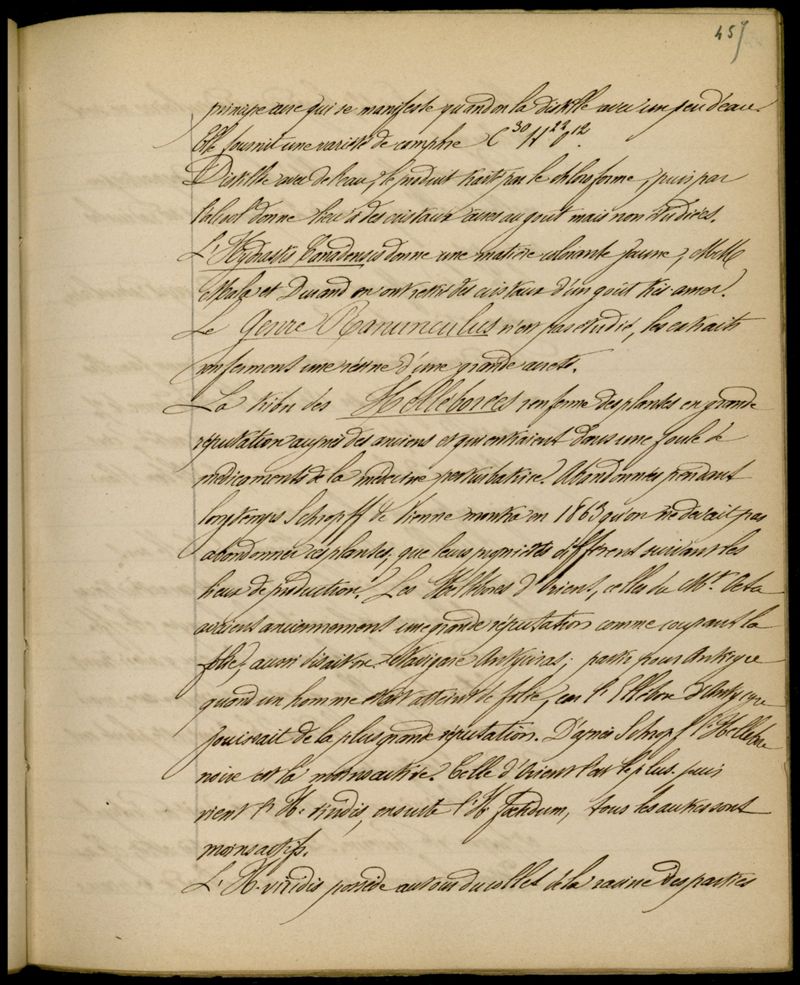 457
principe âcre qui se manifeste quand on la distille avec un peu d'eau
Elle fournit une variété de camphre C30 H22 O12.
Distillée avec de l'eau, le produit traité par le chloroforme, puis par
l'alcool donne lieu à des cristaux âcres au goût mais non étudiées.
L'Hydrastis Canadensis donne une matière colorante jaune, MM
Mala et Durand en ont retiré des cristaux d'un goût très amer.
Le Genre Ranunculus n'est pas étudié, les extraits
renferment une résine d'une grande acreté.
La tribu des Helleborées renferme des plantes en grande
réputation auprès des anciens et qui entraient dans une foule de
médicaments de la médecine perturbatrice. Abandonnées pendant
longtemps Schropff de Vienne montra en 1863 qu'on ne devait pas
abandonner ces plantes, que leurs propriétés différent suivant les
lieux de production. Les Hellébores d'Orient, celles du Mt Oeta
avaient anciennement une grande réputation comme coupant la
folie, aussi disait on Navigare Antyciras; partir pour Anticyre
quand un homme était atteint de folie, car l'Ellébore d'Antycyre
jouissait de la plus grande réputation. D'après Schropff l'Hellébore
noire est la moins active. Celle d'Orient l'est le plus, puis
vient l'H. viridis, ensuite l'H. foetidum, tous les autres sont
moins actifs.
L'H. viridis possède autour du collet de la racine des parties